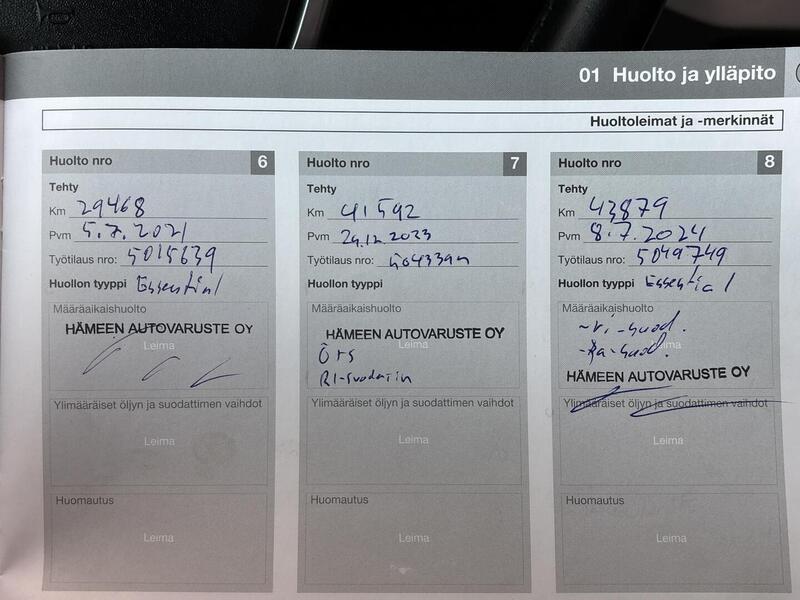 01 Huolto ja ylläpito
Huoltoleimat ja -merkinnät
Huolto nro 6
Tehty
Km 29468
Pvm 5.7.2021
Työtilaus nro: 5015639
Huollon tyyppi Essential
Määräaikaishuolto
HÄMEEN AUTOVARUSTE OY
Leima
Ylimääräiset öljyn ja suodattimen vaihdot
Leima
Huomautus
Leima
Huolto nro 7
Tehty
Km 41592
Pvm 29.12.2023
Työtilaus nro:
Huollon tyyppi
Määräaikaishuolto
HÄMEEN AUTOVARUSTE OY
Leima
Öts
RI-suodatin
Ylimääräiset öljyn ja suodattimen vaihdot
Leima
Huomautus
Leima
Huolto nro 8
Tehty
Km 43879
Pvm 8.7.2024
Työtilaus nro: 5049749
Huollon tyyppi Essential
Määräaikaishuolto
-ri-suod.
-Ra-suod.
HÄMEEN AUTOVARUSTE OY
Ylimääräiset öljyn ja suodattimen vaihdot
Leima
Huomautus
Leima